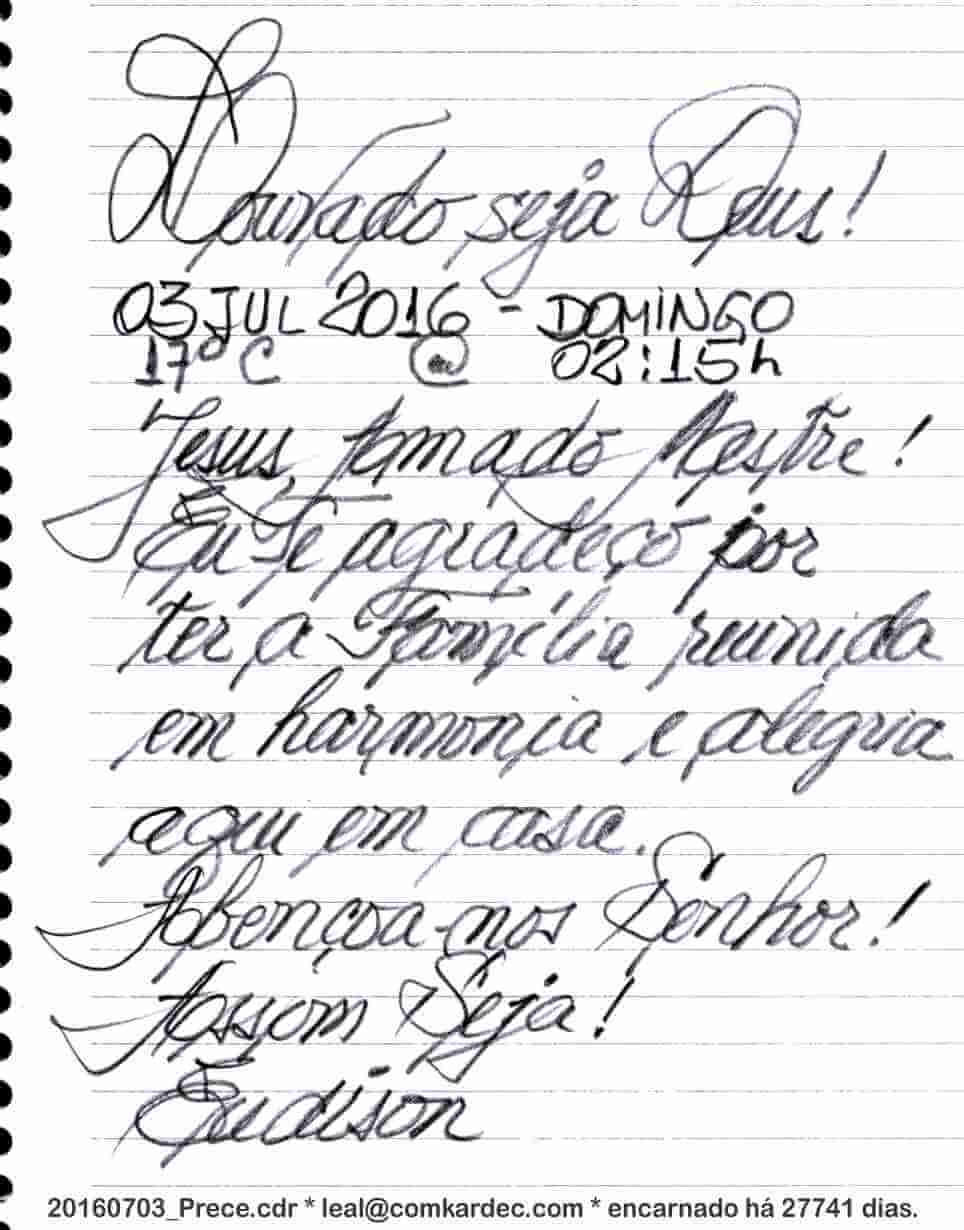 Louvado seja Deus!
03 JUL 2016 - DOMINGO
17º C @ 02:15h
Jesus, Amado Mestre!
Eu Te agradeço por
ter a Família reunida
em harmonia e alegria
aqui em casa.
Abençoa-nos Senhor!
Assim Seja!
Eudison
20160703_Prece.cdr * leal@comkardec.com * encarnado há 27741 dias.